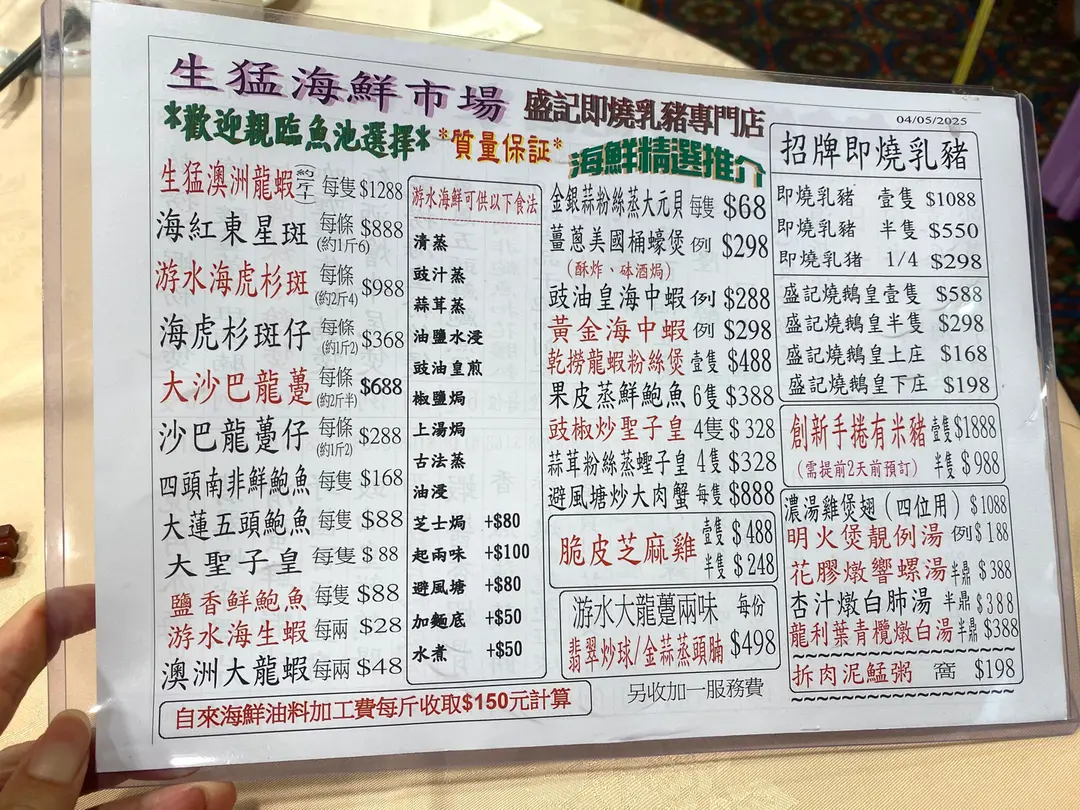 生猛海鮮市場
盛記即燒乳豬專門店
04/05/2025
*歡迎親臨魚池選擇*
*質量保証*
海鮮精選推介
生猛澳洲龍蝦 每隻 $1288
海紅東星斑 每條(約1斤6) $888
游水海虎杉斑 每條(約2斤4) $988
海虎杉斑仔 每條(約1斤2) $368
大沙巴龍躉 每條(約2斤半) $688
沙巴龍躉仔 每條(約1斤2) $288
四頭南非鮮鮑魚 每隻 $168
大蓮五頭鮑魚 每隻 $88
大聖子皇 每隻 $88
鹽香鮮鮑魚 每隻 $88
游水海生蝦 每兩 $28
澳洲大龍蝦 每兩 $48
自來海鮮油料加工費每斤收取$150元計算
游水海鮮可供以下食法
清蒸
豉汁蒸
蒜茸蒸
油鹽水浸
豉油皇煎
椒鹽焗
上湯焗
古法蒸
油浸
芝士焗 +$80
起兩味 +$100
避風塘 +$80
加麵底 +$50
水煮 +$50
金銀蒜粉絲蒸大元貝 每隻 $68
薑蔥美國桶蠔煲 例 $298
(酥炸、砵酒焗)
豉油皇海中蝦 例 $288
黃金海中蝦 例 $298
乾撈龍蝦粉絲煲 壹隻 $488
果皮蒸鮮鮑魚 6隻 $388
豉椒炒聖子皇 4隻 $328
蒜茸粉絲蒸蟶子皇 4隻 $328
避風塘炒大肉蟹 每隻 $888
脆皮芝麻雞 壹隻 $488
半隻 $248
游水大龍躉兩味 每份
翡翠炒球/金蒜蒸頭腩 $498
另收加一服務費
招牌即燒乳豬
即燒乳豬 壹隻 $1088
即燒乳豬 半隻 $550
即燒乳豬 1/4 $298
盛記燒鵝皇壹隻 $588
盛記燒鵝皇半隻 $298
盛記燒鵝皇上庄 $168
盛記燒鵝皇下庄 $198
創新手捲有米豬 壹隻 $1888
(需提前2天前預訂) 半隻 $988
濃湯雞煲翅(四位用) $1088
明火煲靚例湯 例 $188
花膠燉響螺湯 半鼎 $388
杏汁燉白肺湯 半鼎 $388
龍利葉青欖燉白湯 半鼎 $388
拆肉泥鯭粥 窩 $198